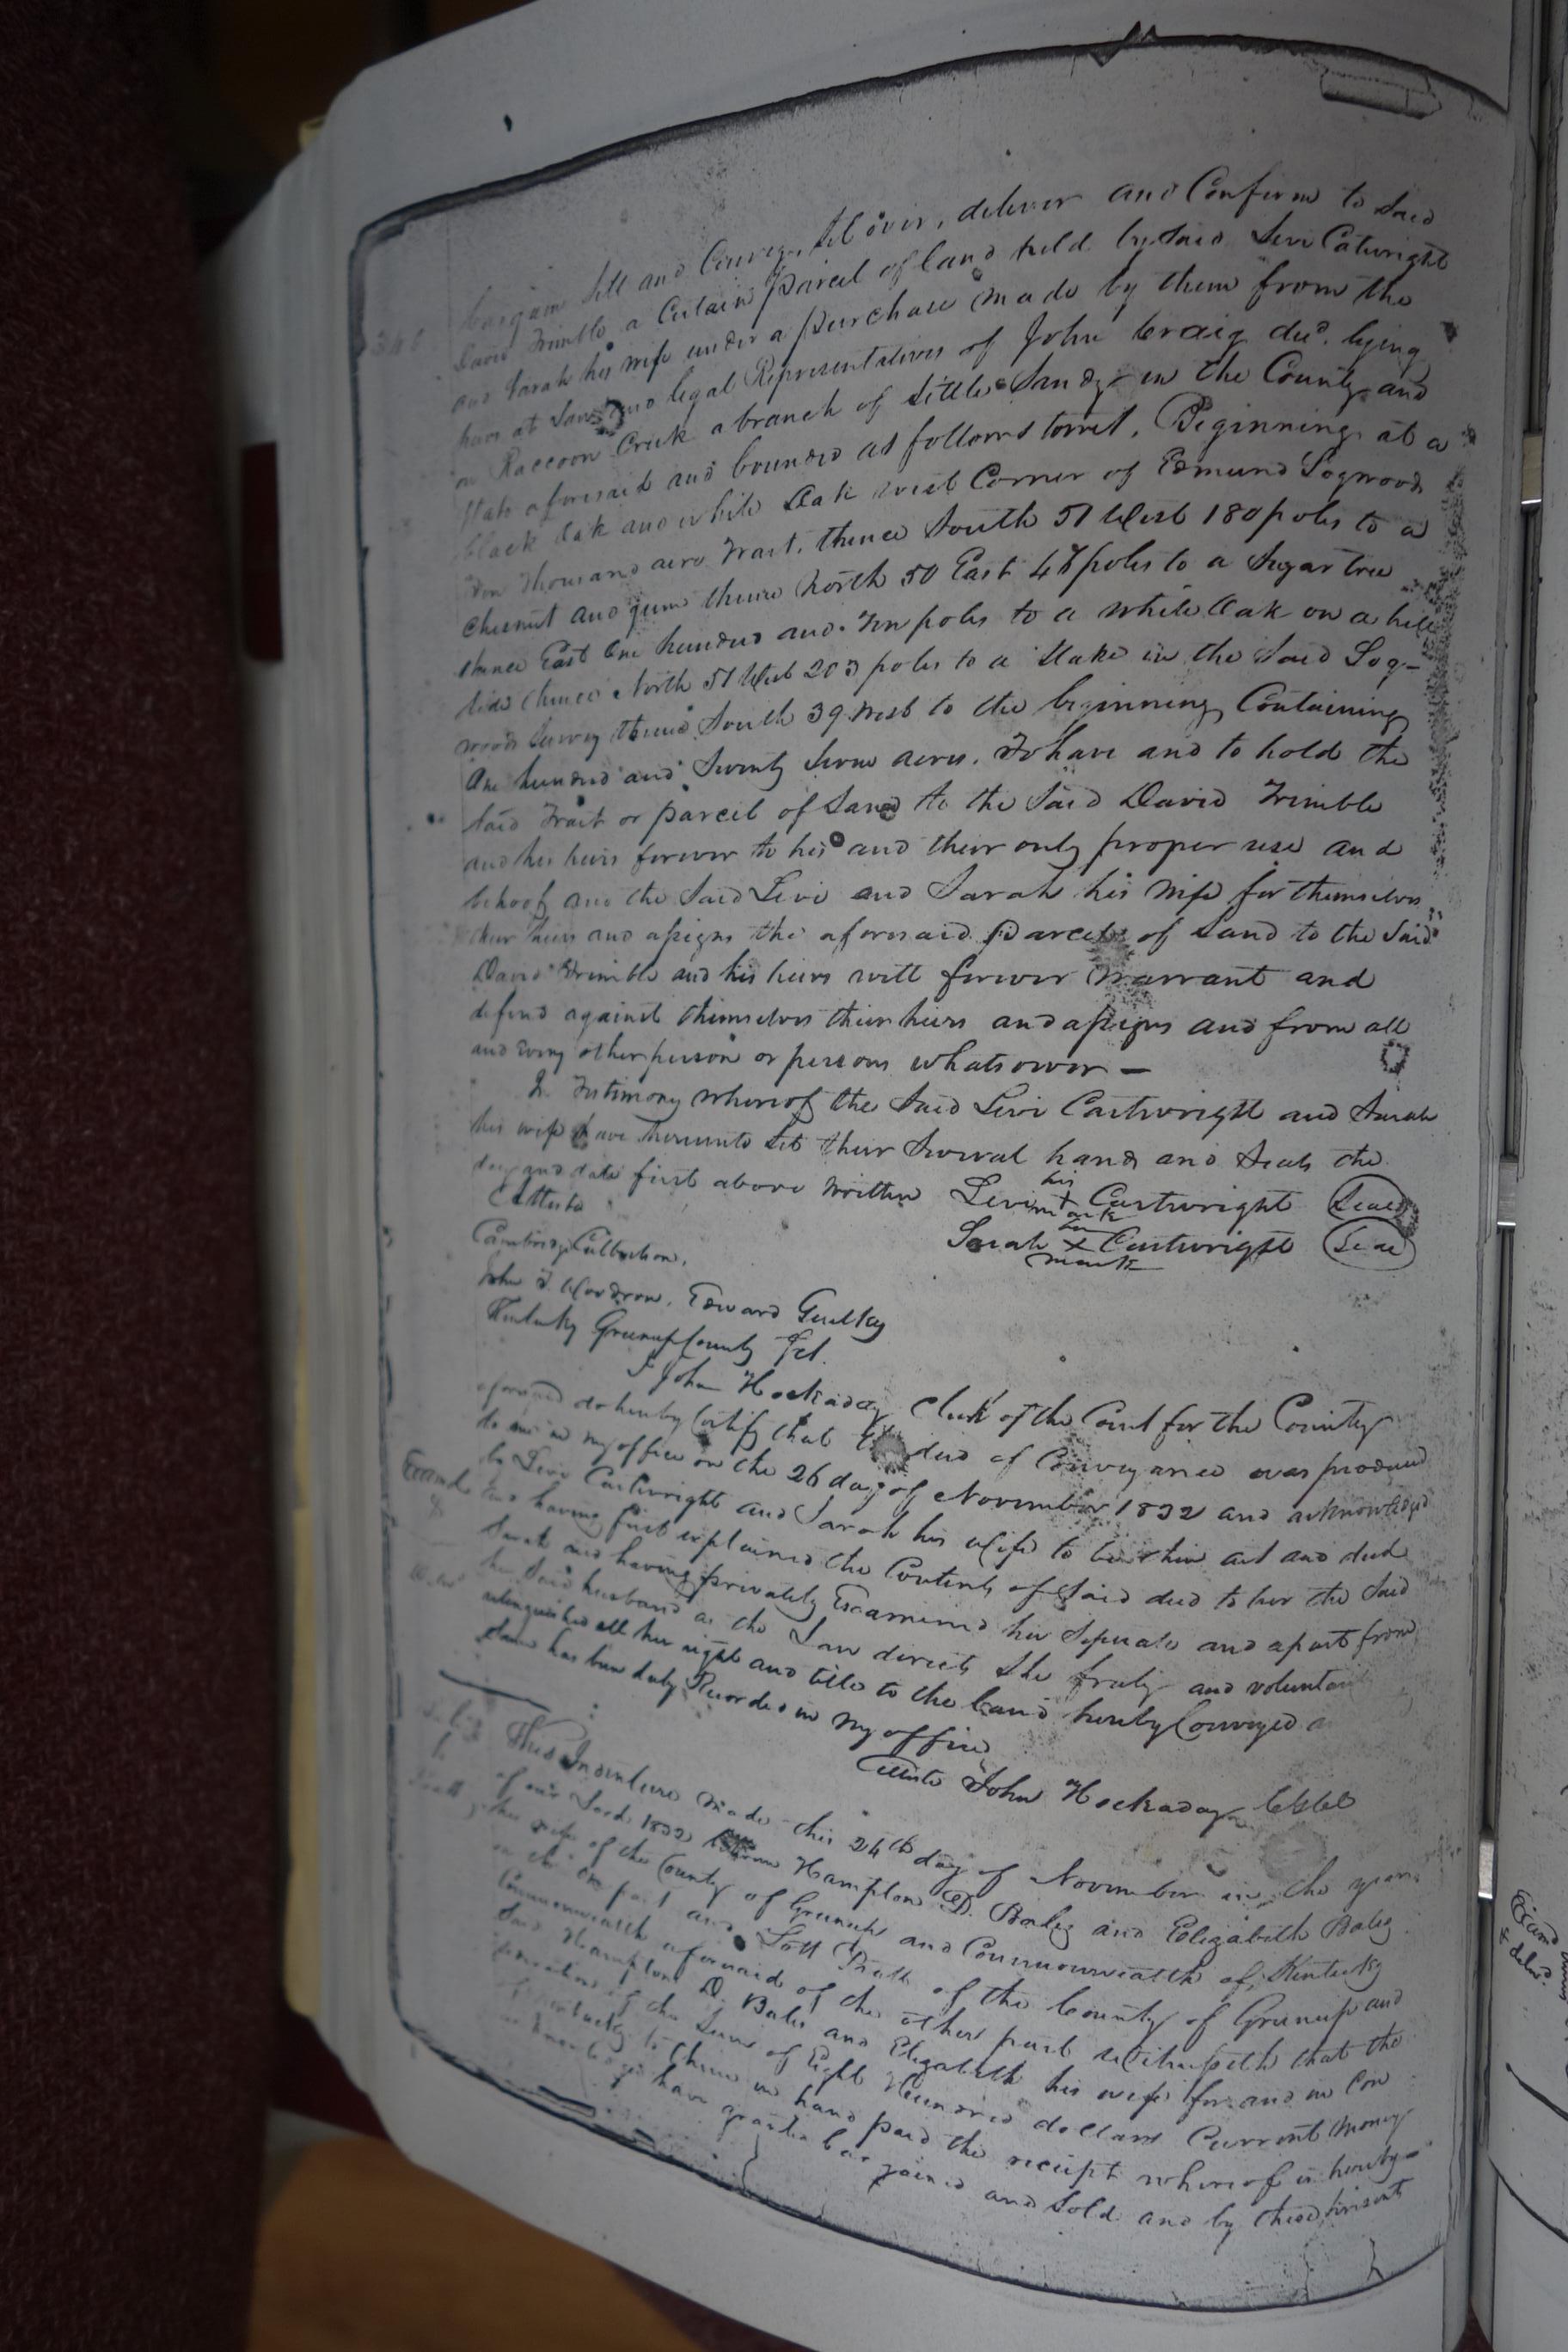 bargain Sell and Convey, Set over, deliver and Confirm to Said
David Trimble a Certain Parcel of land held by Said Levi Catwright
and Sarah his wife under a purchase made by them from the
heirs at Law and legal Representatives of John Craig decd. lying
on Raccoon Creek a branch of Little Sandy in the County and
State aforesaid and bounded as follows towit, Beginning at a
black Oak and white Oak west Corner of Edmund Logwoods
Ten Thousand acre Tract, thence South 51 West 180 poles to a
Chesnut and gum thence North 50 East 48 poles to a Sugar tree
thence East One hundred and Ten poles to a white Oak on a hill
side thence North 51 West 203 poles to a Stake in the Said Log-
woods Survey thence South 39 West to the beginning Containing
One hundred and Seventy Seven acres. To have and to hold the
Said Tract or parcel of Land to the Said David Trimble
and his heirs forever to his and their only proper use and
behoof and the Said Levi and Sarah his wife for themselves
their heirs and assigns the aforesaid Parcel of Land to the Said
David Trimble and his heirs will forever Warrant and
defend against themselves their heirs and assigns and from all
and Every other person or persons whatsoever —
In Testimony whereof the Said Levi Cartwright and Sarah
his wife have hereunto Set their Several hands and Seals the
day and date first above written Levi his + mark Cartwright (Seal)
Attest Sarah her X mark Cartwright (Seal)
Culbertson,
John T. Woodrow, Edward
Kentucky Greenup County Sct.
I John Hockaday Clerk of the Court for the County
aforesaid do hereby Certify that this deed of Conveyance was produced
to me in my office on the 26 day of November 1832 and acknowledged
by Levi Cartwright and Sarah his wife to be their act and deed
Examd and having first explained the Contents of Said deed to her the Said
& Sarah and having privately Examined her Seperate and apart from
her Said husband as the Law directs She freely and voluntarily
relinquished all her right and title to the land hereby Conveyed
Same has been duly Recorded in my office
Attest John Hockaday
This Indenture made this 24th day of November in the year
of our Lord 1832 between Hampton D. Baley and Elizabeth Baley
his wife of the County of Greenup and Commonwealth of Kentucky
on the One part and Pratt of the County of Greenup and
Commonwealth aforesaid of the other part Witnesseth that the
Said Hampton D. Baley and Elizabeth his wife for and in Con
sideration of the Sum of Eight Hundred dollars Current money
of Kentucky to them in hand paid the receipt whereof is hereby
acknowledged have granted bargained and Sold and by these presents
Examd
& delvd.